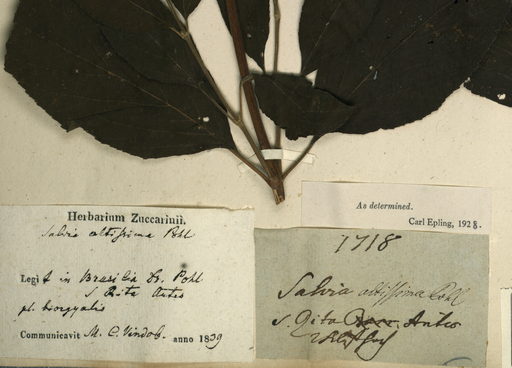 Herbarium Zuccarinii.
Salvia altissima Pohl
Legit in Brasilia Dr. Pohl
S Rita Antes
pl. biorgyalis
Communicavit M. C. Vindob. anno 1839
As determined.
Carl Epling, 1928.
1718
Salvia altissima Pohl
S. Rita Antes